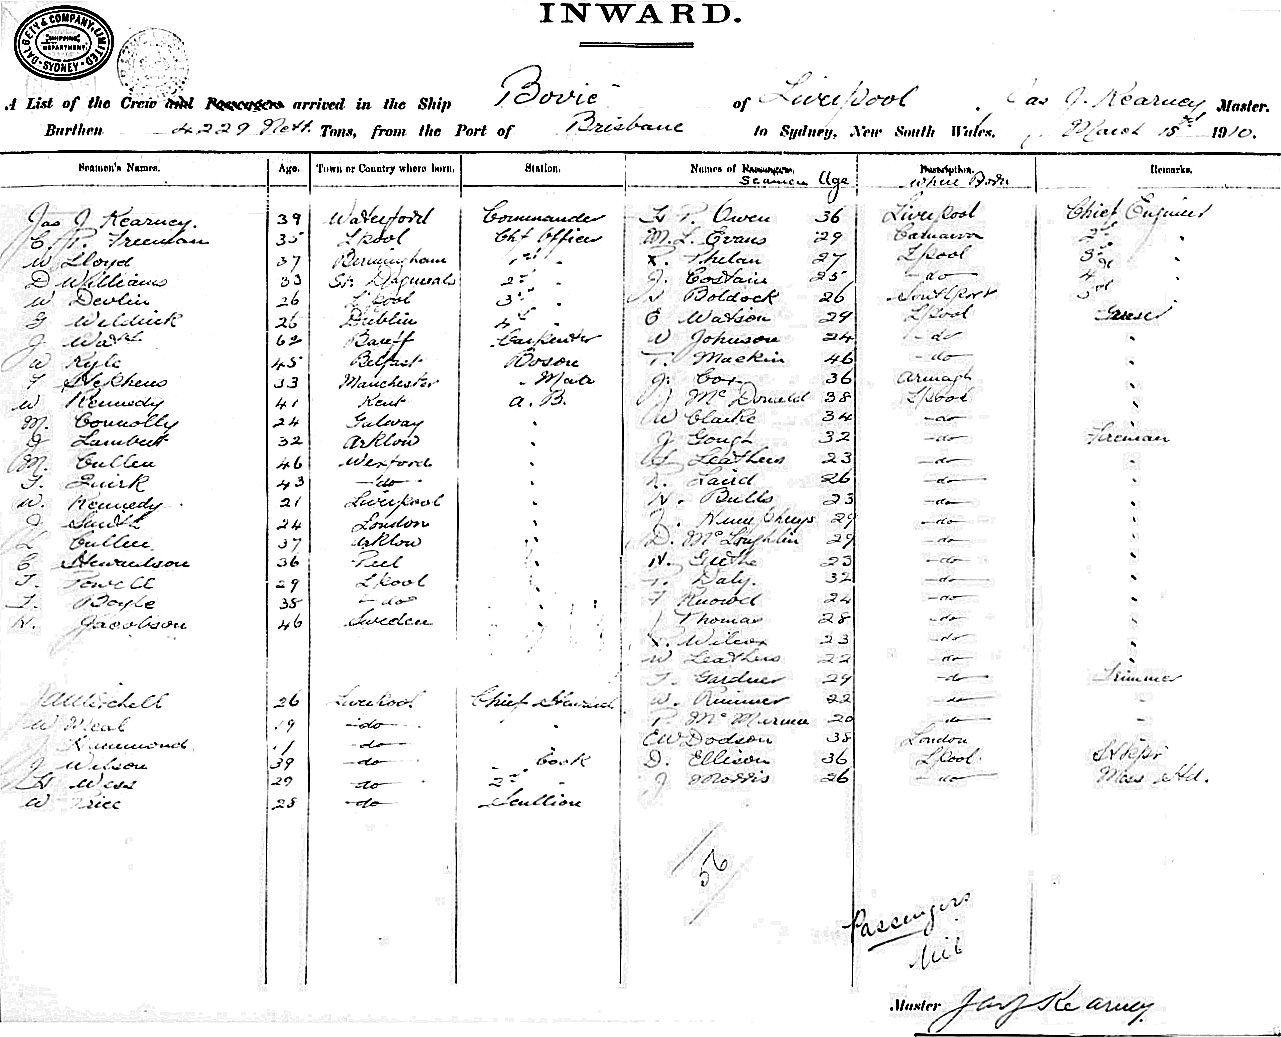 INWARD.
DALGETY & COMPANY LIMITED
SHIPPING DEPARTMENT
SYDNEY
A List of the Crew and Passengers arrived in the Ship Bovic of Liverpool, Jas J. Kearney Master.
Burthen 4229 Nett Tons, from the Port of Brisbane to Sydney, New South Wales, March 15th 1910.
Seamen's Names. Age. Town or Country where born. Station. Names of Passengers. Seamen Age Description. Where Born Remarks.
Jas J. Kearney. 39 Waterford Commander
C. P. Freeman 35 L'pool Chf Officer
W Lloyd 37 Birmingham 1st "
D Williams 33 St 2nd "
W Devlin 26 L'pool 3rd "
26 Dublin 4th "
J Watt 62 Banff Carpenter
W Kyle 45 Belfast Bosun
F Stephens 33 Manchester " Mate
W Kennedy 41 Kent A.B.
M. Connolly 24 Galway "
J Lambert 32 Arklow "
M. Cullen 46 Wexford "
T. Quirk 43 -do- "
W. Kennedy 21 Liverpool "
J Smith 24 London "
L Cullen 37 Arklow "
C 36 Peel "
T. Powell 29 L'pool "
T. Boyle 38 -do- "
N. Jacobson 46 Sweden
J Mitchell 26 Liverpool Chief Steward
W Neal 19 -do- "
J Hammond -do-
J Wilson 39 -do- " Cook
H West 29 -do- 2nd "
W Price 28 -do- Scullion
H P. Owen 36 Liverpool Chief Engineer
M. L. Evans 29 Carnarvon 2nd "
R. Phelan 27 L'pool 3rd "
J. Costain 25 -do- 4th "
Boldock 26 Southport
Watson 29 L'pool Greaser
W Johnson 24 -do- "
T. Mackin 46 -do- "
J. Cox 36 Armagh "
J McDonald 38 L'pool "
W Clarke 34 -do-
J Gough 32 -do- Fireman
H Leathers 23 -do- "
R. Laird 26 -do- "
H. Bulls 23 -do- "
J. Humphreys 29 -do- "
D. McLoughlin 29 -do- "
N. 23 -do- "
P. Daly. 32 -do- "
F 24 -do- "
J Thomas 28 -do- "
R. Wilcox 23 -do- "
W Leathers 22 -do- "
T. Gardner 29 -do- Trimmer
W. Rimmer 22 -do- "
P. 20 -do- "
E W Dodson 38 London
D. Ellison 36 L'pool.
J Morris 26 -do- Mess Std.
56
Passengers
Nil
Master Jas J Kearney